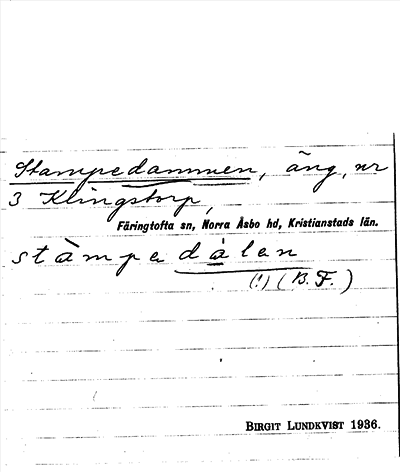 Stampedammen, äng, nr
3 Klingstorp,
Färingtofta sn, Norra Åsbo hd, Kristianstads län.
stàmpedàlen
(!) (B.F.)
BIRGIT LUNDKVIST 1936.